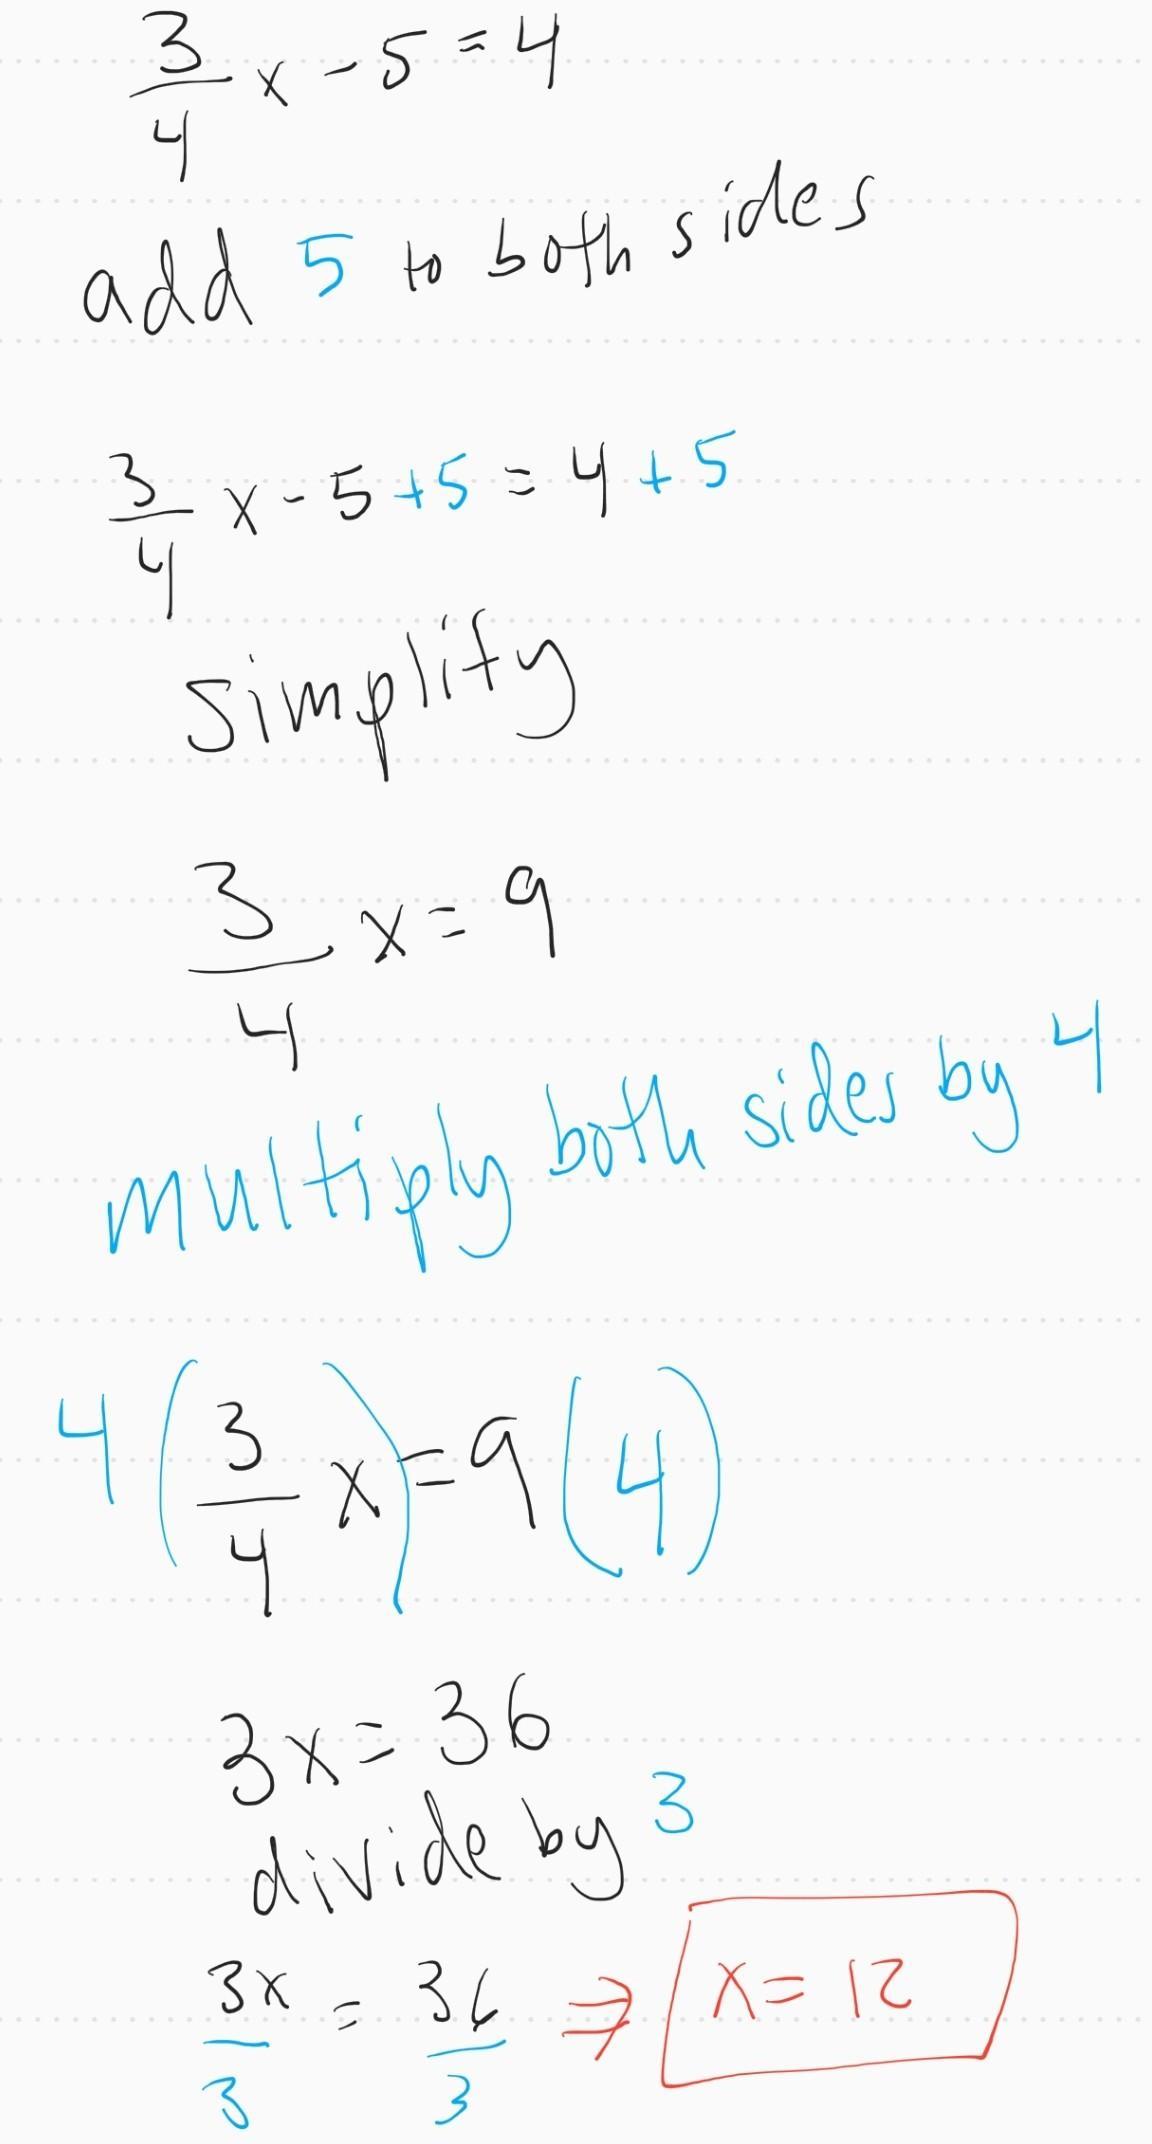 3/4 x - 5 = 4
add 5 to both sides
3/4 x - 5 + 5 = 4 + 5
simplify
3/4 x = 9
multiply both sides by 4
4(3/4 x) = 9(4)
3x = 36
divide by 3
3x/3 = 36/3 ⇒ x = 12